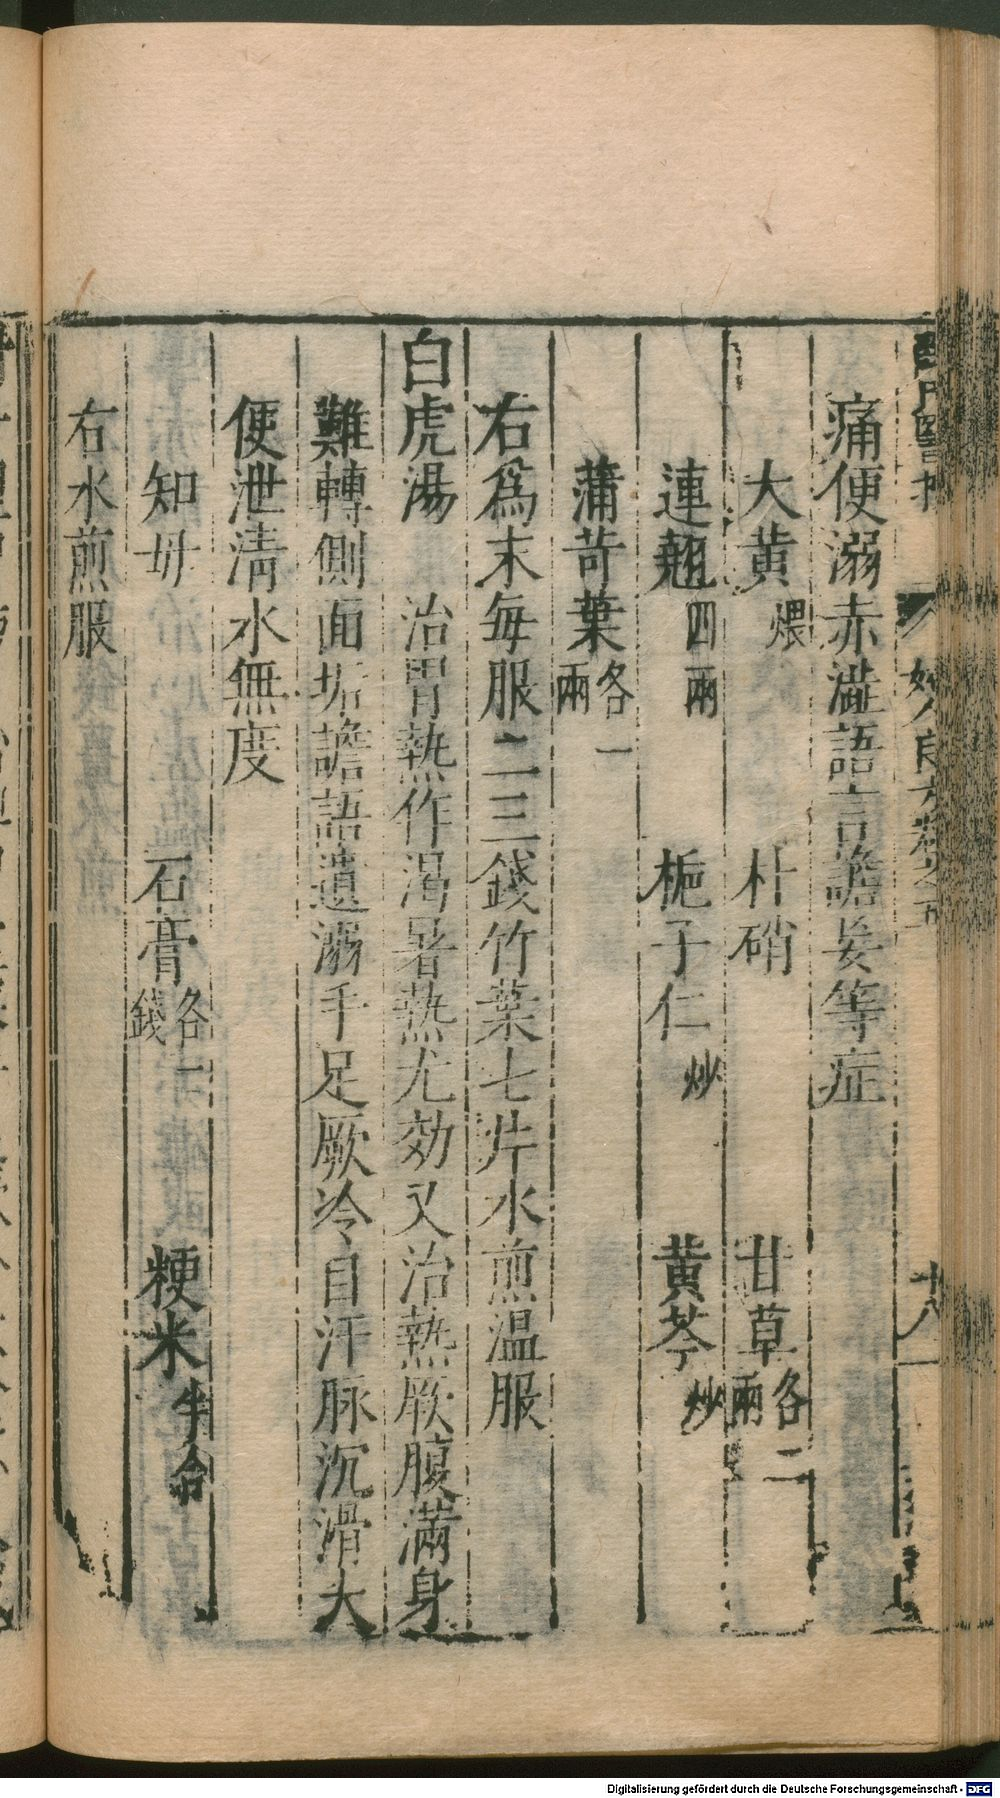 痛便溺赤澁語言譫妄等症
大黄煨 朴硝 甘草各二兩
連翹四兩 梔子仁炒 黄芩炒
蒲苛葉各一兩
右爲末每服二三錢竹葉七片水煎温服
白虎湯 治胃熱作渴暑熱尤効又治熱厥腹滿身
難轉側面垢譫語遺溺手足厥冷自汗脉沉滑大
便泄清水無度
知毋 石膏各一錢 粳米半合
右水煎服
十八
Digitalisierung gefördert durch die Deutsche Forschungsgemeinschaft - DFG